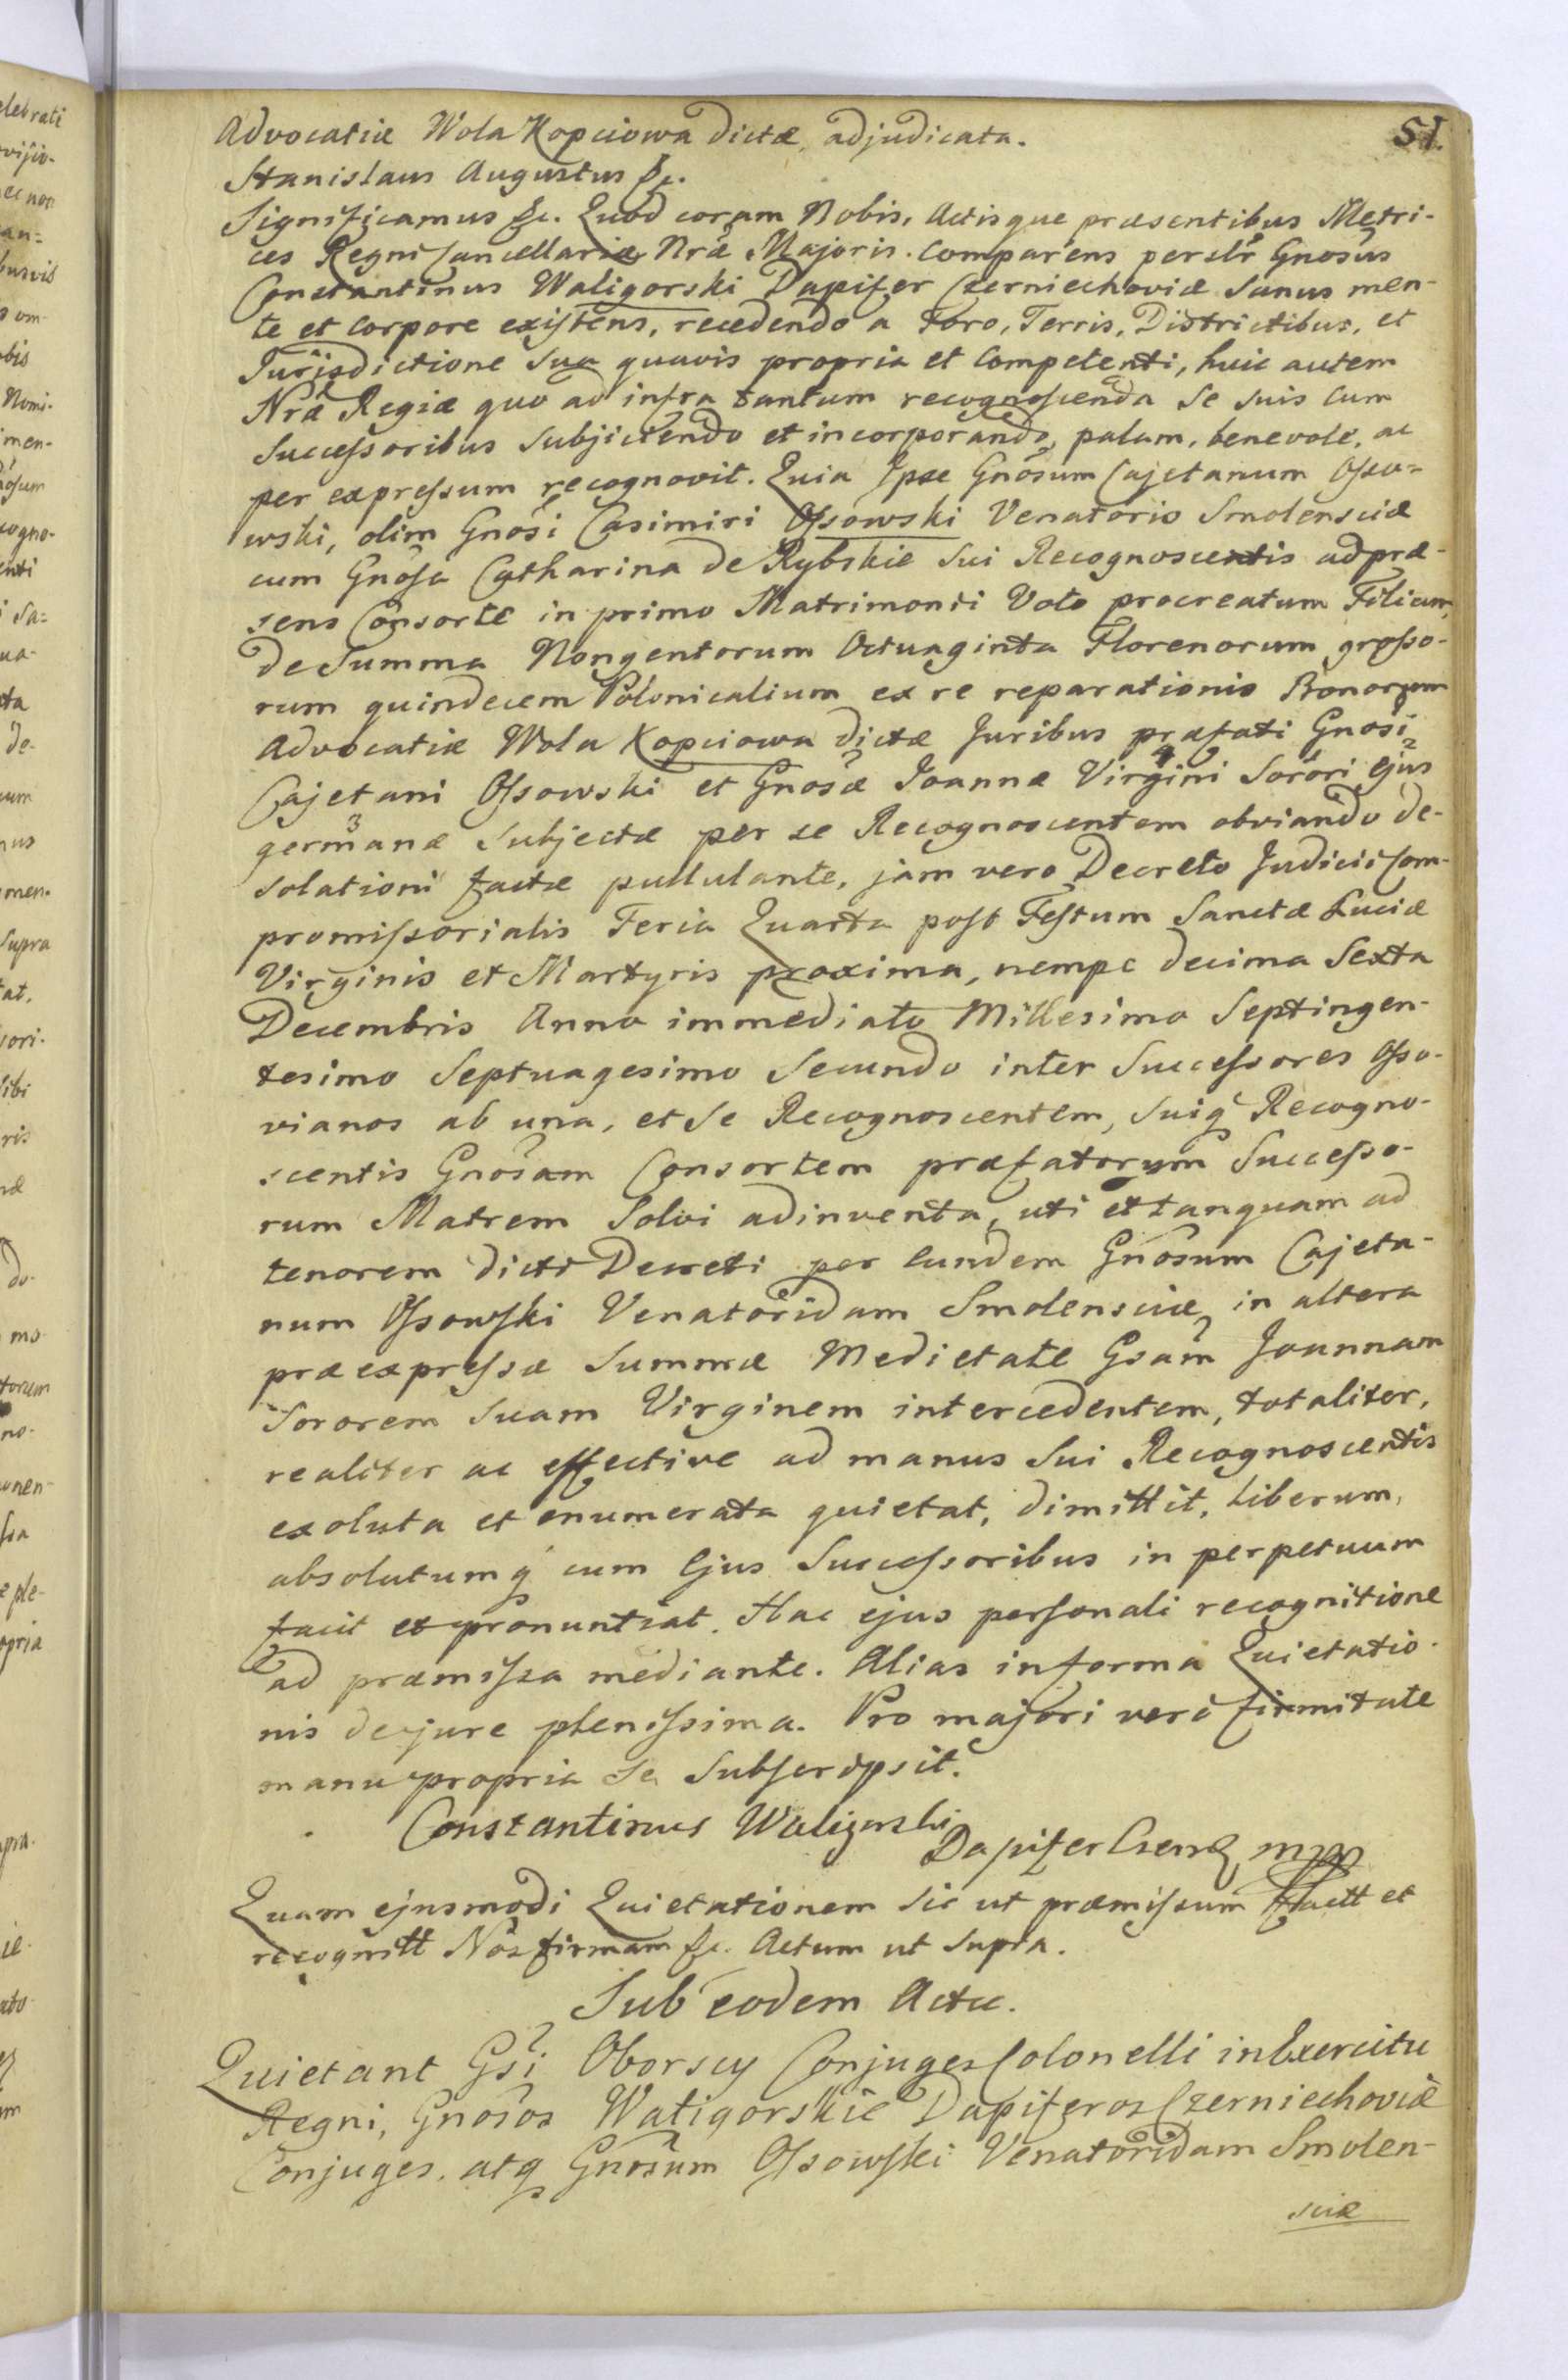 51.
Advocatiæ Wola Kopciowa dictæ adjudicata.
Stanislaus Augustus &c.
Significamus &c. Quod coram Nobis, Actisque præsentibus Metri-
ces Regni Cancellariæ Nræ Majoris. Comparens perslr Gnosus
Constantinus Waligorski Dapifer Czerniechoviæ Sanus men-
te et Corpore existens, recedendo a Foro, Terris, Districtibus, et
Jurisdictione Sua quavis propria et Competenti, huic autem
Nræ Regiæ quo ad infra tantum recognoscenda Se Suis Cum
Successoribus Subjiciendo et incorporando, palam, benevole, ac
per expressum recognovit. Quia Ipse Gnosum Cajetanum Osso-
wski, olim Gnosi Casimiri Ossowski Venatoris Smolensciæ
cum Gnosa Catharina de Rybskie Sui Recognoscentis ad præ-
sens Consorte in primo Matrimonii Voto procreatum Filium,
de Summa Nongentorum Octuaginta Florenorum grosso-
rum quindecem Polonicalium ex re reparationis Bonorum
Advocatiæ Wola Kopciowa dictæ Juribus præfati Gnosi
Cajetani Ossowski et Gnosæ Joannæ Virgini 4 Sorori ejus 2
germanæ 3 Subjectæ per se Recognoscentem obviando de-
solationi factæ pullulante, jam vero Decreto Judicii Com-
promissorialis Feria Quarta post Festum Sanctæ Luciæ
Virginis et Martyris proxima, nempe decima Sexta
Decembris Anno immediato Millesimo Septingen-
tesimo Septuagesimo Secundo inter Successores Osso-
vianos ab una, et Se Recognoscentem, Suiq Recogno-
scentis Gnosam Consortem præfatorum Successo-
rum Matrem Solvi adinventa, uti et tanquam ad
tenorem dicti Decreti per Eundem Gnosum Cajeta-
num Ossowski Venatoridam Smolensciæ, in altera
præexpressæ Summæ Medietate Gsam Joannam
Sororem Suam Virginem intercedentem, totaliter,
realiter ac effective ad manus Sui Recognoscentis
exoluta et enumerata quietat, dimittit, Liberum,
absolutumq cum Ejus Successoribus in perpetuum
facit et pronuntiat. Hac ejus personali recognitione
ad præmissa mediante. Alias in forma Quietatio-
nis de jure plenissima. Pro majori vero firmitate
manu propria Se Subscripsit.
Constantinus Waligorski
Dapifer Czerq mpp
Quam ejusmodi Quietationem Sic ut præmissum factt et
recognitt Nos firmam &c. Actum ut Supra.
Sub eodem Actu.
Quietant Gsi Oborscy Conjuges Colonelli in Exercitu
Regni, Gnosos Waligorskie Dapiferos Czerniechoviæ
Conjuges, atq Gnosum Ossowski Venatoridam Smolen-
sciæ